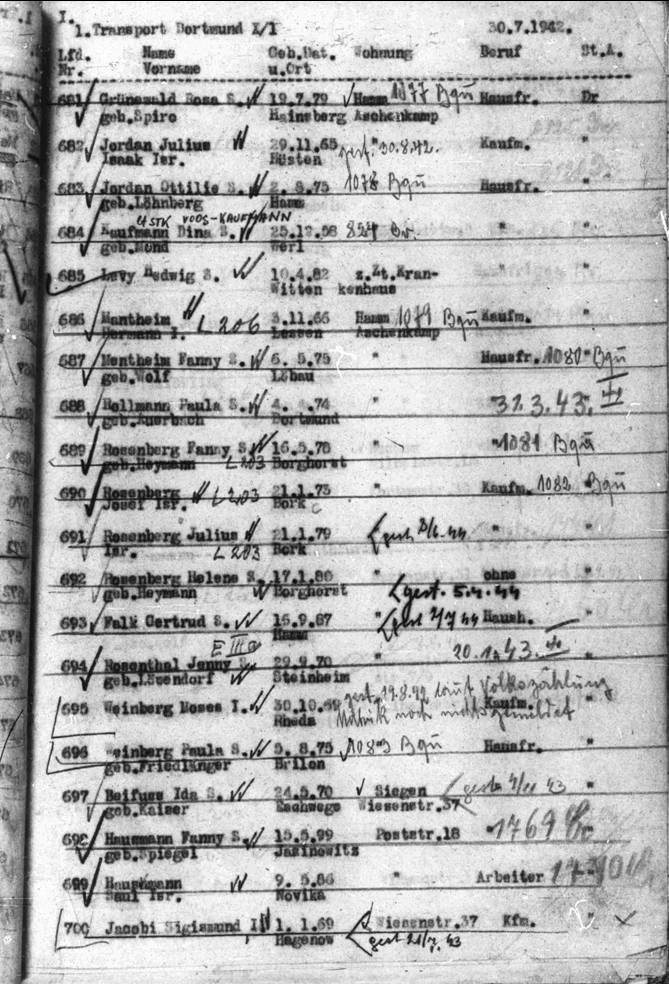 I.
1.Transport Dortmund X/I 30.7.1942.
Lfd. Name Geb.Dat. Wohnung Beruf St.A.
Nr. Vorname u.Ort
681 Grünewald Rosa S. 19.7.79 Hamm 1077 Bqu Hausfr. Dr
geb.Spiro Hainsberg Aschenkamp
682 Jordan Julius 29.11.65 " gest. 30.8.42. Kaufm. "
Isaak Isr. Hüsten
683 Jordan Ottilie S. 2. 8.75 1078 Bqu Hausfr. "
geb.Löhnberg Hamm
VOOS-KAUFMANN
684 Kaufmann Dina S. 25.12.58 " "
geb.Mond Werl
685 Levy Hedwig S. 10.4.82 z.Zt.Kran- "
Witten kenhaus
686 Mantheim 3.11.66 Hamm 1079 Bqu Kaufm. "
Hermann I. L 206 Lessen Aschenkamp
687 Mentheim Fanny S. 6. 5.75 " Hausfr. 1080 Bqu
geb.Wolf Löbau
688 Hollmann Paula S. 4. 4.74 " " 31.3.43.
geb.Auerbach Dortmund
689 Rosenberg Fanny S. 16.5.78 " 1081 Bqu
geb.Heymann L 203 Borghorst
690 Rosenberg L 203 21.1.73 " Kaufm. 1082 Bqu
Josef Isr. Bork
691 Rosenberg Julius 21.1.79 " "
Isr. L 203 Bork
692 Rosenberg Helene S. 17.1.80 " ohne "
geb.Heymann Borghorst gest. 5.4.44
693 Falk Gertrud S. 16.9.87 " gest 7/7 44 Haush. "
Hamm
E III a
694 Rosenthal Jenny S. 29.9.70 " 20.1.43.
geb.Lövendorf Steinheim
gest. 19.8.42 laut Volkszählung
695 Weinberg Moses I. 30.10.69 Kaufm. "
Rheda Matrik noch nicht gemeldet
696 Weinberg Paula S. 5. 8.75 1083 Bqu Hausfr. "
geb.Friedlänger Brilon
697 Beifuss Ida S. 24.5.70 Siegen "
geb.Kaiser Eschwege Wiesenstr.37
698 Hausmann Fanny S. 15.5.99 Poststr.18 " 1769
geb.Spiegel Jasinowitz
699 Hausmann 9. 5.86 " Arbeiter
Saul Isr. Novika
700 Jacobi Sigismund I 1. 1.69 Wiesenstr.37 Kfm. "
Hagenow